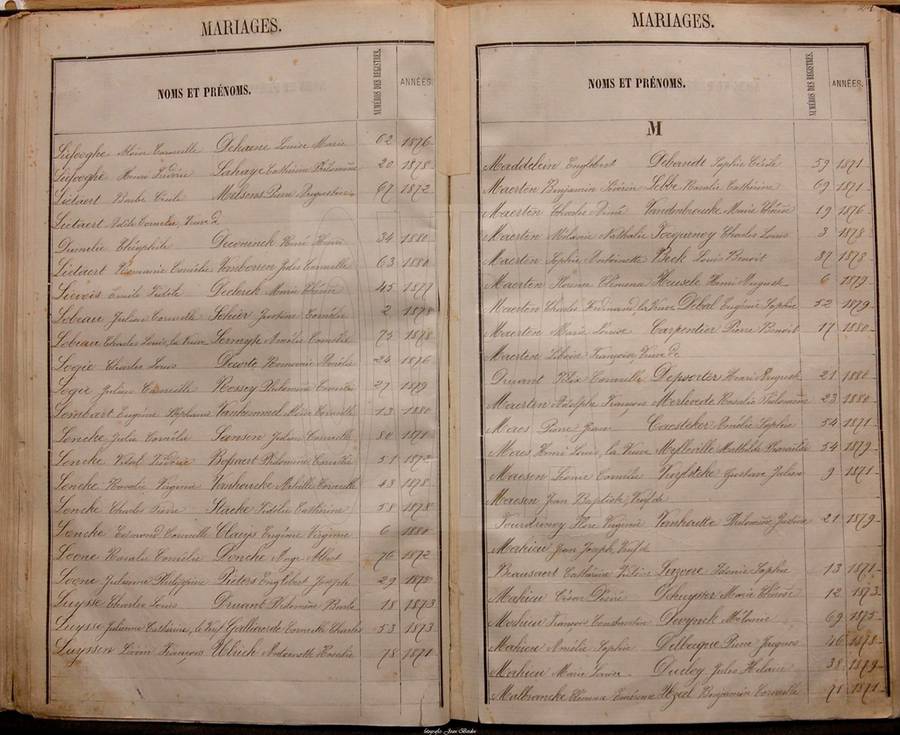 MARIAGES.
NOMS ET PRÉNOMS.
NUMÉROS DES REGISTRES.
ANNÉES
Liefooghe Aloïse Corneille Dehaene Louise Marie 62 1876
Liefooghe Henri Fréderic Lahaye Catherine Philomène 20 1878
Lietaert Barbe Cécile Milsens Pierre 67 1872
Lietaert Sophie Cornélie, Veuve de
Dumelie Théophile Deconinck Henri 34 1880
Lietaert Romanie Camélie Vanboven Jules Corneille 63 1880
Lievois Emile Fidèle Declerck Marie Thérèse 45 1877
Lobeau Julien Corneille Justine Cornélie 2 1878
Lobeau Charles Louis, la Veuve Amélie Cornélie 75 1878
Logie Charles Louis Romanie 24 1876
Logie Julien Corneille Rossey Philomène Cornélie 27 1879
Lombaert Eugène Stéphane Vankemmel Aloïse Corneille 13 1880
Loncke Julie Cornélie Sansen Julien Corneille 80 1871
Loncke Vital Fréderic Bossaert Philomène Camélie 51 1872
Loncke Rosalie Virginie Corneille 43 1878
Loncke Charles Pierre Stacke Fidélie Catherine 58 1878
Loncke Edouard Corneille Claeys Eugénie Virginie 6 1880
Loone Rosalie Cornélie Doncke Ange Albert 76 1872
Loone Julienne Philippine Pieters Englebert Joseph 29 1875
Luysse Charles Louis Druant Philomène Barbe 18 1873
Luysse Julienne Catherine, le Veuf Corneille Charles 53 1873
Luyssen Louis François Ulrich Antoinette Rosalie 78 1871
MARIAGES.
NOMS ET PRÉNOMS.
NUMÉROS DES REGISTRES.
ANNÉES.
M
Maddelein Englebert Debandt Sophie Cécile 59 1871
Maerten Benjamin Séverin Sebbe Rosalie Catherine 69 1871
Maerten Charles Aimé Vandenbroucke Marie Thérèse 19 1876
Maerten Mélanie Nathalie Charles Louis 3 1878
Maerten Sophie Antoinette Beck Louis Benoit 87 1878
Maerten Horence Clémence Henri August 6 1879
Maerten Charles Ferdinand, la Veuve Debal Eugénie Sophie 52 1879
Maerten Marie Louise Carpentier Pierre Benoit 17 1880
Maerten Libère François, Veuve de
Druant Félix Corneille Depoorter Henri August 21 1880
Maerten Adolphe François Mortevede Rosalie Philomène 23 1880
Maes Pierre Jean Caesteker Amélie Sophie 54 1871
Maes Henri Louis, la Veuve Melleville Mathilde 54 1879
Maeson Léonie Camélie Gustave Julien 9 1871
Maeson Jean Baptiste, Veuf de
Flore Virginie Philomène Justine 21 1879
Mahieu Jean Joseph, Veuf de
Beausaert Catherine Victoire Idonie Sophie 13 1871
Mahieu César Désiré Deruyter Marie Thérèse 12 1873
Mahieu François Constantin Devynck Mélanie 69 1875
Mahieu Amélie Sophie Delbergue Pierre Jacques 46 1878
Mahieu Marie Louise Ducloy Jules Hilaire 38 1879
Malbrancke Clémence Benjamin Corneille 71 1871